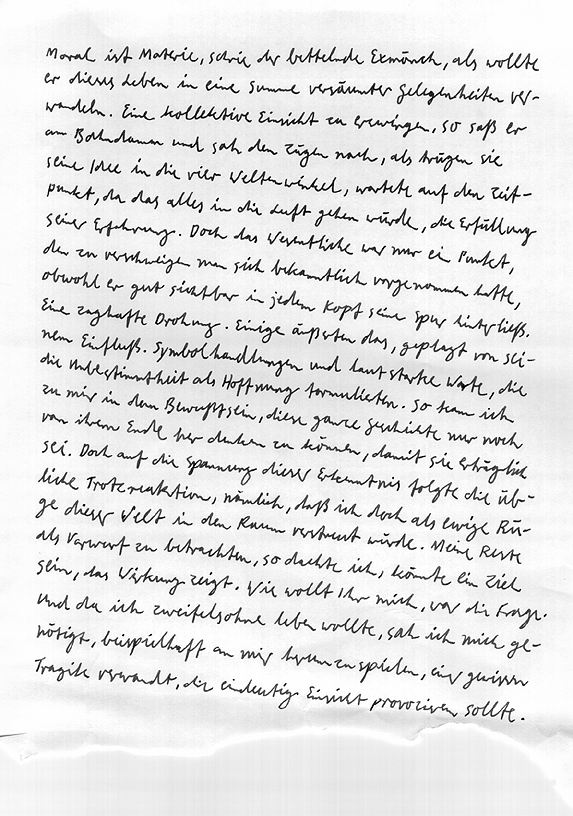 Moral ist Materie, schrie der bettelnde Exmönch, als wollte
er dieses Leben in eine Summe versäumter Gelegenheiten ver-
wandeln. Eine kollektive Einsicht zu erzwingen, so saß er
am Bahndamm und sah den Zügen nach, als trügen sie
seine Idee in die vier Weltenwinkel, wartete auf den Zeit-
punkt, da das alles in die Luft gehen würde, die Erfüllung
seiner Erfahrung. Doch das Wesentliche war nur ein Punkt,
den zu verschweigen man sich bekanntlich vorgenommen hatte,
obwohl er gut sichtbar in jedem Kopf seine Spur hinterließ.
Eine zaghafte Drohung. Einige äußerten das, geplagt von sei-
nem Einfluß. Symbolhandlungen und lautstarke Worte, die
die Unbestimmtheit als Hoffnung formulierten. So kam ich
zu mir in dem Bewußtsein, diese ganze Geschichte nur noch
von ihrem Ende her denken zu können, damit sie erträglich
sei. Doch auf die Spannung dieser Erkenntnis folgte die üb-
liche Trotzreaktion, nämlich, daß ich doch als ewige Rü-
ge dieser Welt in den Raum verstreut würde. Meine Reste
als Vorwurf zu betrachten, so dachte ich, könnte ein Ziel
sein, das Wirkung zeigt. Wie wollt Ihr mich, war die Frage.
Und da ich zweifelsohne leben wollte, sah ich mich ge-
nötigt, beispielhaft an mir herumzuspielen, einer gewissen
Tragik verwandt, die eindeutige Einsicht provozieren sollte.